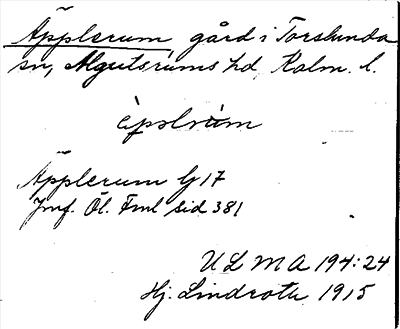 Äpplerum gård i Torslunda
sn, Algutsrums hd, Kalm. l.
èpslrùm
Äpplerum G 17
Jmf. Öl. Fml sid 381
ULMA 194:24
Hj. Lindroth 1915